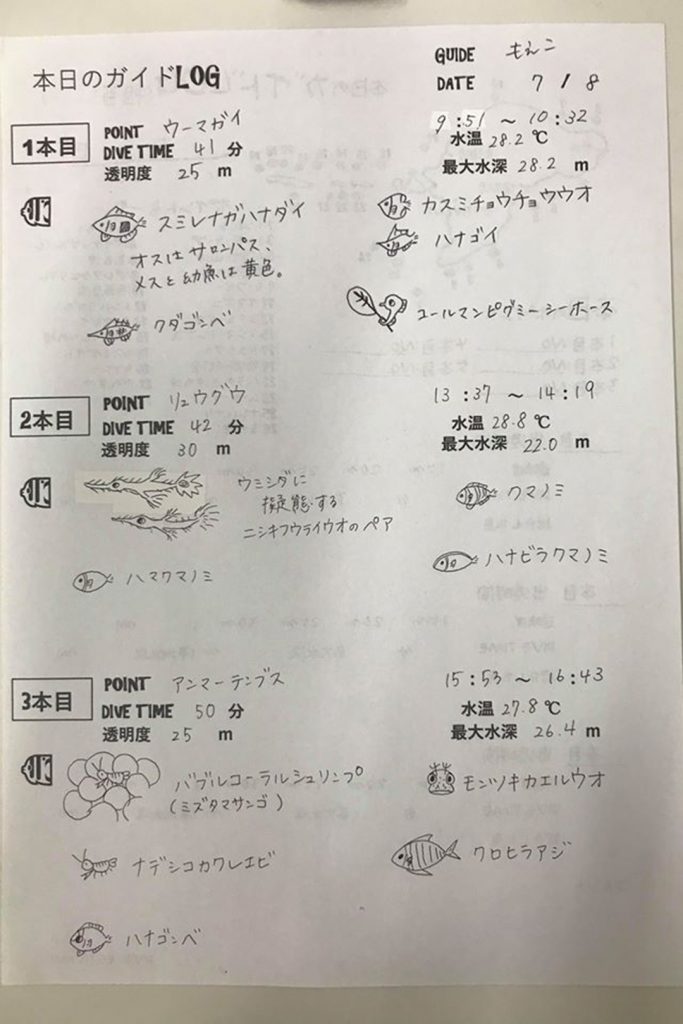 本日のガイドLOG
GUIDE もえこ
DATE 7 / 8
1本目
POINT ウーマガイ
DIVE TIME 41 分
透明度 25 m
9:51 ～ 10:32
水温 28.2 ℃
最大水深 28.2 m
スミレナガハナダイ
オスはサロンパス、
メスと幼魚は黄色。
クダゴンベ
カスミチョウチョウウオ
ハナゴイ
コールマンピグミーシーホース
2本目
POINT リュウグウ
DIVE TIME 42 分
透明度 30 m
13:37 ～ 14:19
水温 28.8 ℃
最大水深 22.0 m
ウミシダに
擬態する
ニシキフウライウオのペア
ハマクマノミ
クマノミ
ハナビラクマノミ
3本目
POINT アンマーテンブス
DIVE TIME 50 分
透明度 25 m
15:53 ～ 16:43
水温 27.8 ℃
最大水深 26.4 m
バブルコーラルシュリンプ
(ミズタマサンゴ)
ナデシコカクレエビ
ハナゴンベ
モンツキカエルウオ
クロヒラアジ